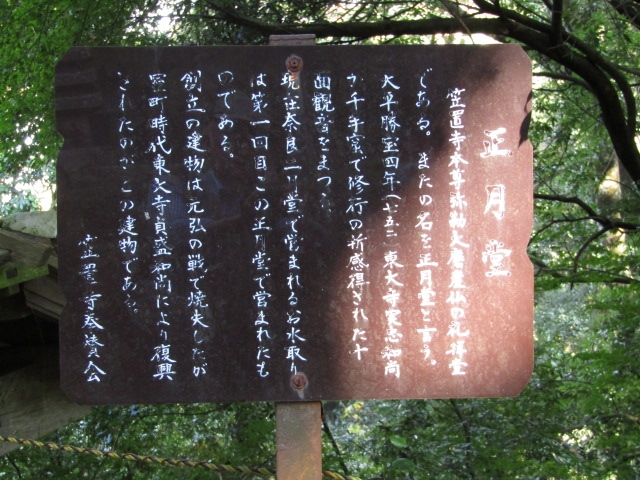 正月堂
笠置寺本尊弥勒大磨崖仏の礼拝堂
である。またの名を正月堂と言う。
天平勝宝四年(七五二)東大寺実忠和尚
が千手窟で修行の折感得された十一
面観音をまつり
現在奈良二月堂で営まれるお水取り
は第一回目この正月堂で営まれたも
のである。
創立の建物は元弘の戦で焼失したが
室町時代東大寺貞盛和尚により復興
されたのがこの建物である。
笠置寺奉賛会